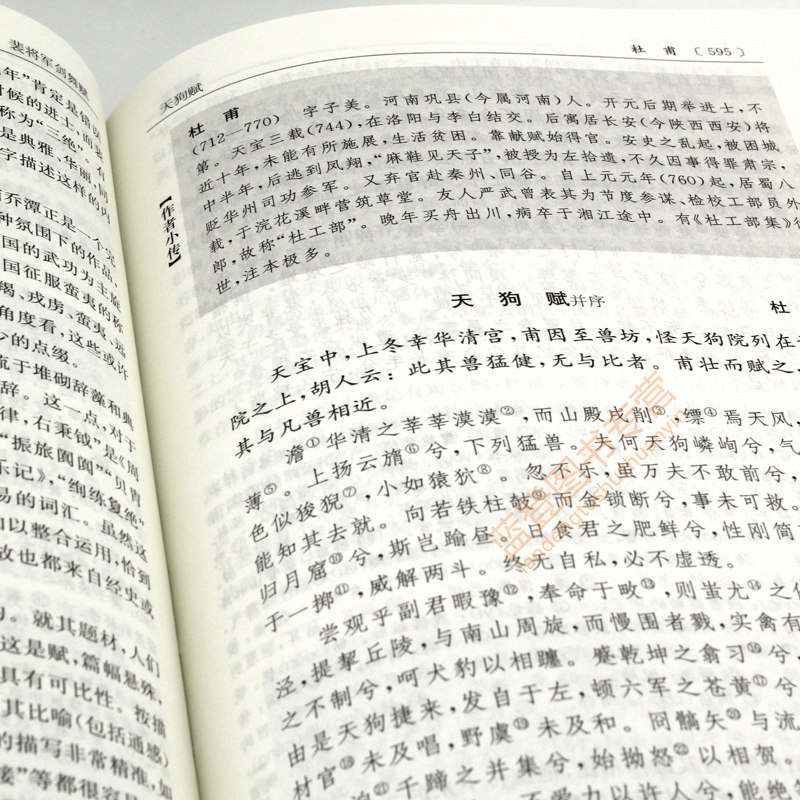 裴将军剑舞赋
年”肯定是错误
时候的进士,而裴
称为“三绝”。有
是典雅、华丽,同
字描述这样的内
乔潭正是一个完
种氛围下的作品,
国的武功为主旋
国征服蛮夷的称
羯、戎虏、蛮夷、远
角度看,这些或许
今的点缀。
流于堆砌辞藻和典
辞。这一点,对于
律,右秉钺”是《周
“振旅阗阗”贝胄
乐记》,“绚练复绝”
易的词汇。虽然这
加以整合运用,恰到
故也都来自经史或
的。就其题材,人们
这是赋,篇幅悬殊,
具有可比性。按描
其比喻(包括通感)
的描写非常精准,如
接”等都很容易
天狗赋
杜 甫 〔595〕
【作者小传】
杜 甫
(712—770) 字子美。河南巩县(今属河南)人。开元后期举进士,不
第。天宝三载(744),在洛阳与李白结交。后寓居长安(今陕西西安)将
近十年,未能有所施展,生活贫困。靠献赋始得官。安史之乱起,被困城
中半年,后逃到凤翔,“麻鞋见天子”,被授为左拾遗,不久因事得罪肃宗,
贬华州司功参军。又弃官赴秦州、同谷。自上元元年(760)起,居蜀八
载,于浣花溪畔营筑草堂。友人严武曾表其为节度参谋、检校工部员外
郎,故称“杜工部”。晚年买舟出川,病卒于湘江途中。有《杜工部集》行
世,注本极多。
天 狗 赋并序
杜
天宝中,上冬幸华清宫,甫因至兽坊,怪天狗院列在
院之上,胡人云:此其兽猛健,无与比者。甫壮而赋之,
其与凡兽相近。
澹①华清之莘莘漠漠②,而山殿戌削③,缥④焉天风,
薄⑤。上扬云旓⑥兮,下列猛兽。夫何天狗嶙峋兮,气
色似狻猊⑦,小如猿狖⑧。忽不乐,虽万夫不敢前兮,
能知其去就。向若铁柱攲⑨而金锁断兮,事未可救。
归月窟⑩兮,斯岂踰昼。日食君之肥鲜兮,性刚简
于一掷⑪,威解两斗。终无自私,必不虚透。
尝观乎副君暇豫⑫,奉命于畋⑬,则蚩尤⑭之
泾,提挈丘陵,与南山周旋,而慢围者戮,实禽有
之不制兮,呵犬豹以相躔。蹙乾坤之翕习⑯兮,
由是天狗捷来,发自于左,顿六军之苍黄⑰兮
材官⑱未及唱,野虞⑲未及和。冏髇矢⑳与流
千蹄之并集兮,始拗怒㉒以相贺。
不爱力以许人兮,能绝
蓝登图书专营
landengtushuzhuanying